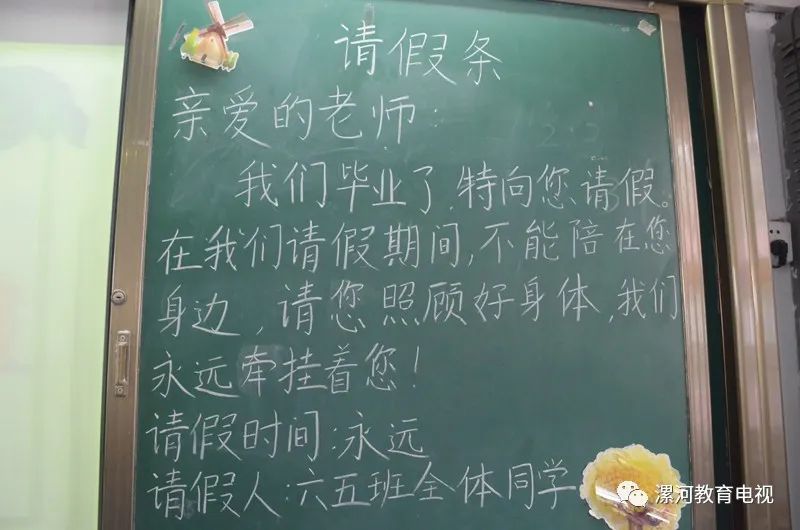 请假条
亲爱的老师:
我们毕业了,特向您请假。
在我们请假期间,不能陪在您
身边,请您照顾好身体,我们
永远牵挂着您!
请假时间:永远
请假人:六五班全体同学
漯河教育电视